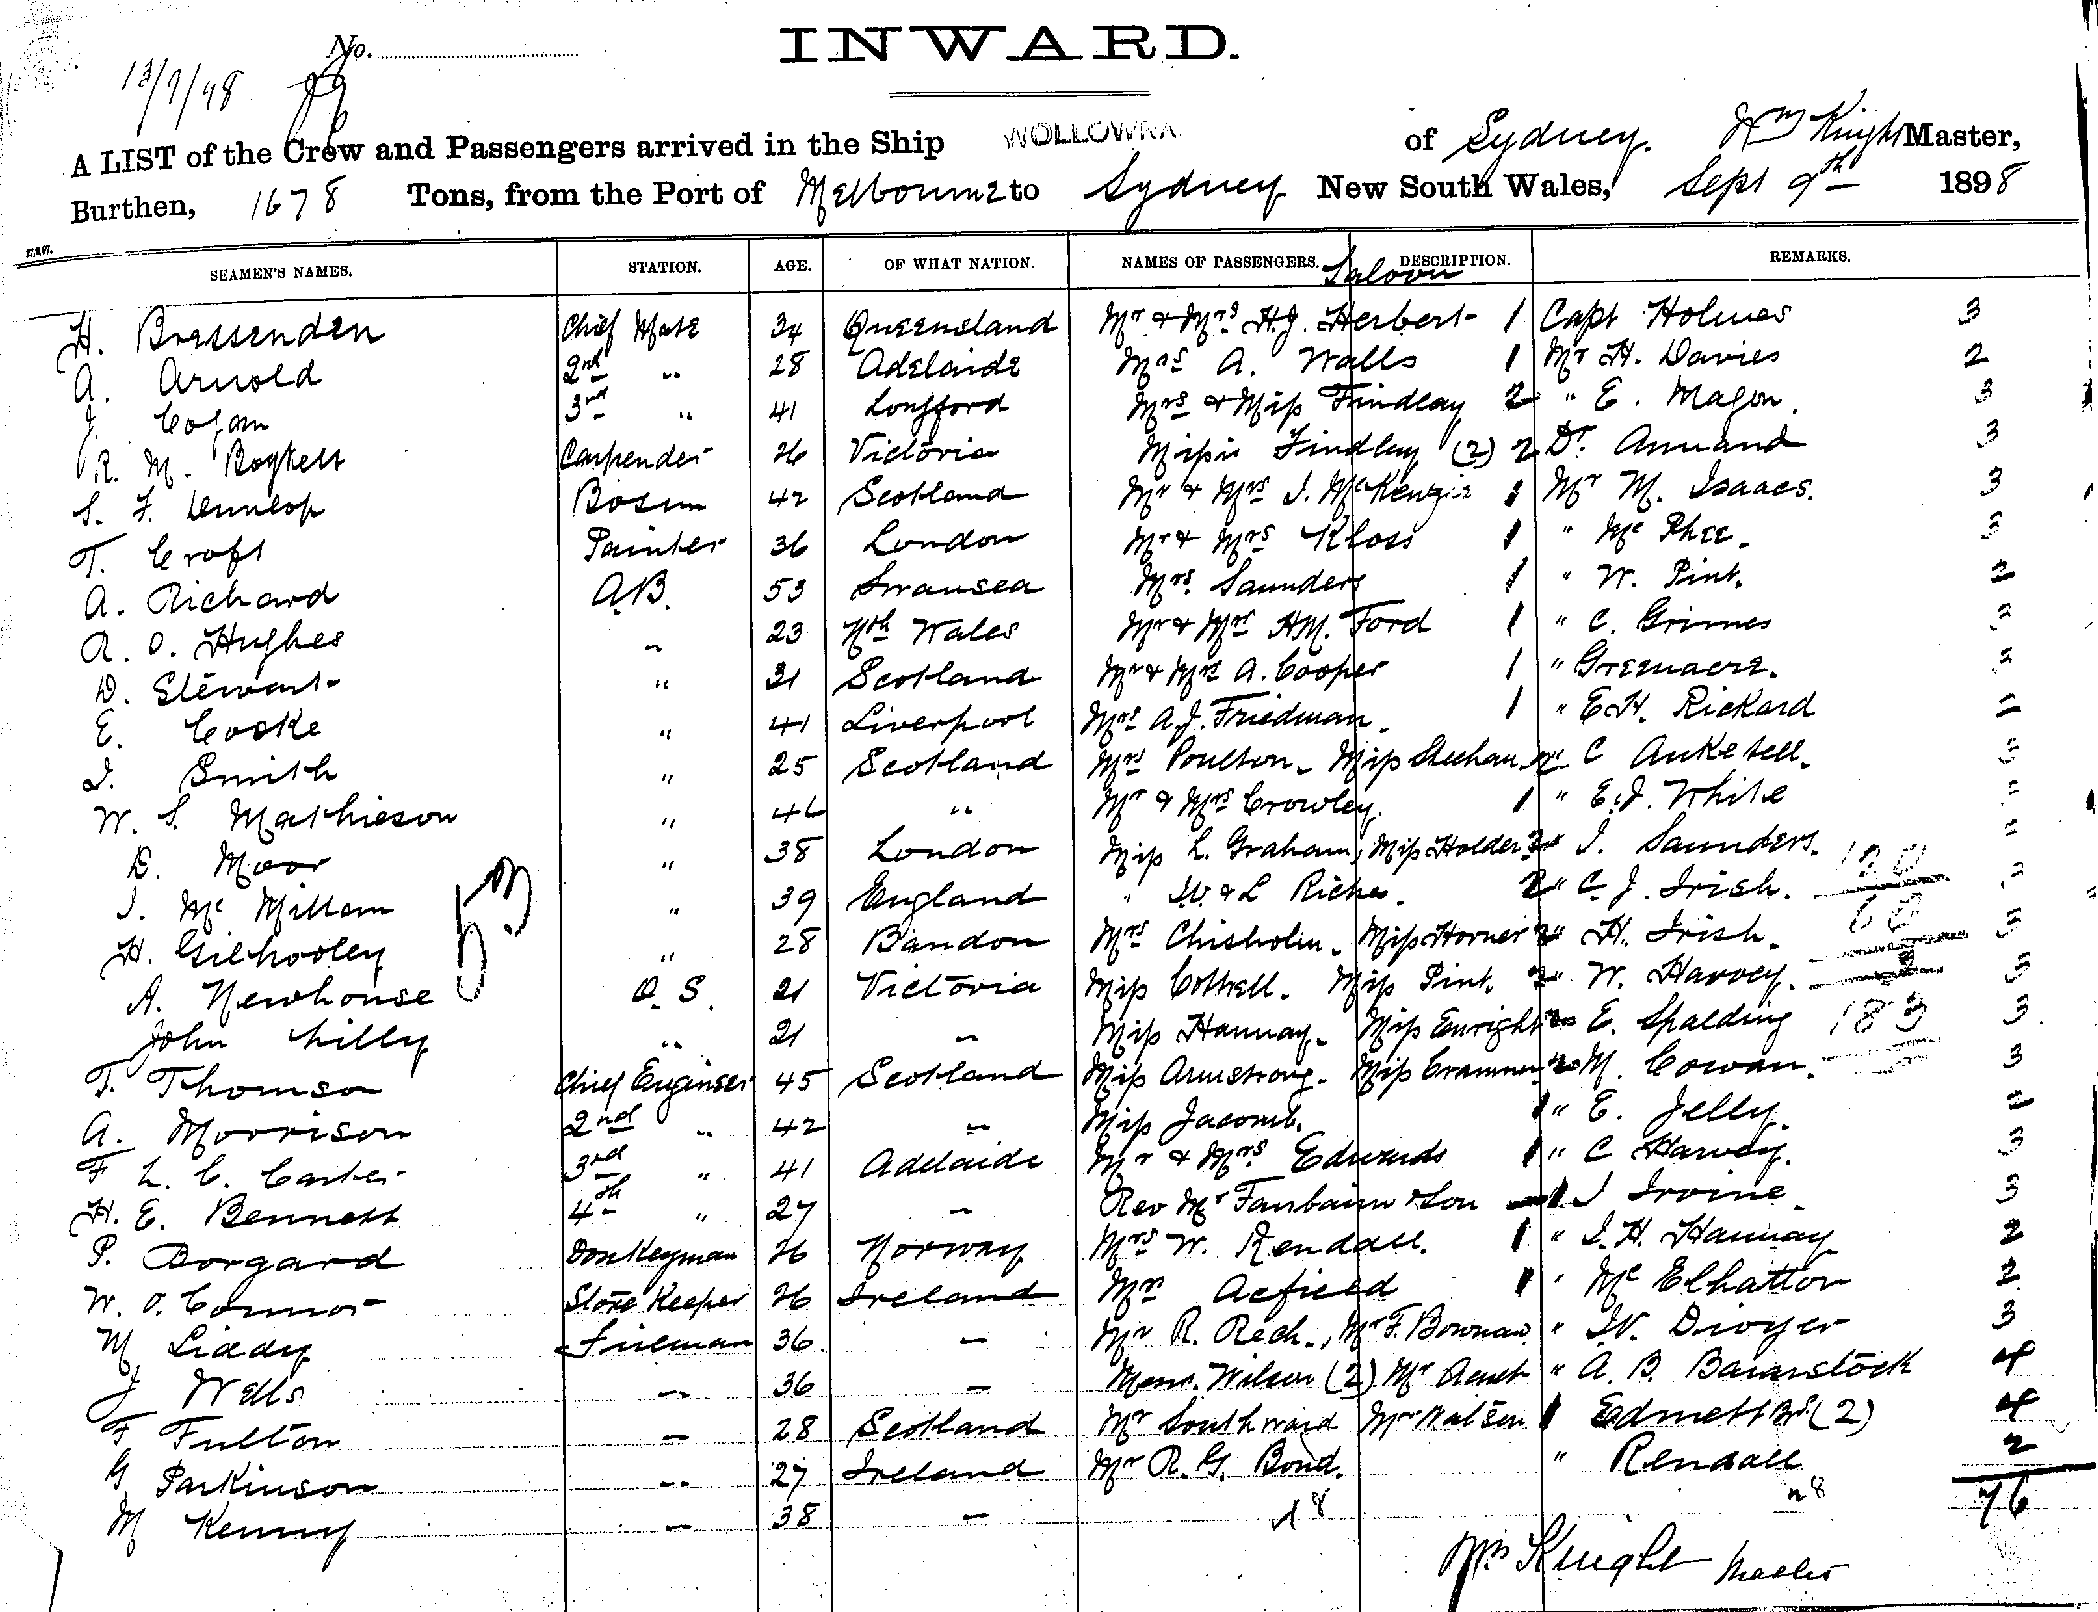 No.
INWARD.
13/9/98
A LIST of the Crew and Passengers arrived in the Ship WOLLOWRA of Sydney. Wm Knight Master,
Burthen, 1678 Tons, from the Port of Melbourne to Sydney New South Wales, Sept 9th 1898
SEAMEN'S NAMES. STATION. AGE. OF WHAT NATION. NAMES OF PASSENGERS. DESCRIPTION. REMARKS.
Saloon
H. Bressenden Chief Mate 34 Queensland Mr & Mrs H.J. Herbert 1 Capt Holmes 3
A. Arnold 2nd " 28 Adelaide Mrs A. Walls 1 Mr H. Davies 2
J. Cogan 3rd " 41 Longford Mrs & Miss Findlay 2 " E. Magon. 3
R. M. Carpender 26 Victoria Misses Findlay (2) 2 Dr. Annand 3
S. F. Dunlop Bosun 42 Scotland Mr & Mrs J. McKenzie 1 Mr M. Isaacs. 3
T. Croft Painter 36 London Mr & Mrs Kloss 1 " Mc Phee. 3
A. Richard A.B. 53 Swansea Mrs. Saunders 1 " W. Pink. 2
R. O. Hughes " 23 Nth Wales Mr & Mrs HM. Ford 1 " C. Grimes
D. Stewart " 31 Scotland Mr & Mrs A. Cooper 1 " Greenacre.
E. Cooke " 41 Liverpool Mrs A.J. Friedman. 1 " E.H. Rickard
J. Smith " 25 Scotland Mrs Poulton. Miss Sheehan " C Anketell.
W. S. Mathieson " 46 " Mr & Mrs Crowley. 1 " E.J. White
D. Moor " 38 London Miss L. Graham, Miss Holder 2 " J. Saunders. 130
J. Mc Millam " 39 England " W & L Riche. 2 " C. J. Irish.
53
H. Gilhooley " 28 Bandon Mrs Chisholm. Miss Horner 2 " H. Irish.
A. Newhouse O. S. 21 Victoria Miss Cottrell. Miss Pink. 2 " W. Harvey. 3
John Lilly " 21 " Miss Hannay. Miss Enright 2 " E. Spalding 183 3
T. Thomson Chief Engineer 45 Scotland Miss Armstrong. Miss Crammer 2 " M. Cowan. 3
A. Morrison 2nd " 42 " Miss Jacomb. 1 " E. Jelly. 2
F L. C. Carter 3rd " 41 Adelaide Mr & Mrs Edwards 1 " C Harvey. 3
H. E. Bennett 4th " 27 " Rev Mr Fairbairn & Son 1 J Irvine. 3
P. Borgard Donkeyman 26 Norway Mrs W. Rendall. 1 " J. H. Hannay 2
W. O. Connor Store Keeper 26 Ireland Mrs Acfield 1 " Mc Elhatton 2
M Liddy Fireman 36 " Mr R. Rech., Mr F. Bowman " W. Dwyer 3
J Wells " 36 " Messrs. Wilson (2) Mr " A. B. Bannstock 4
F Fulton " 28 Scotland Mr Southward Mr Watson 1 Edmett Br. (2) 4
G Parkinson " 27 Ireland Mr R. G. Bond. " Rendall 2
M Kenny " 38 " 28 76
Wm Knight Master